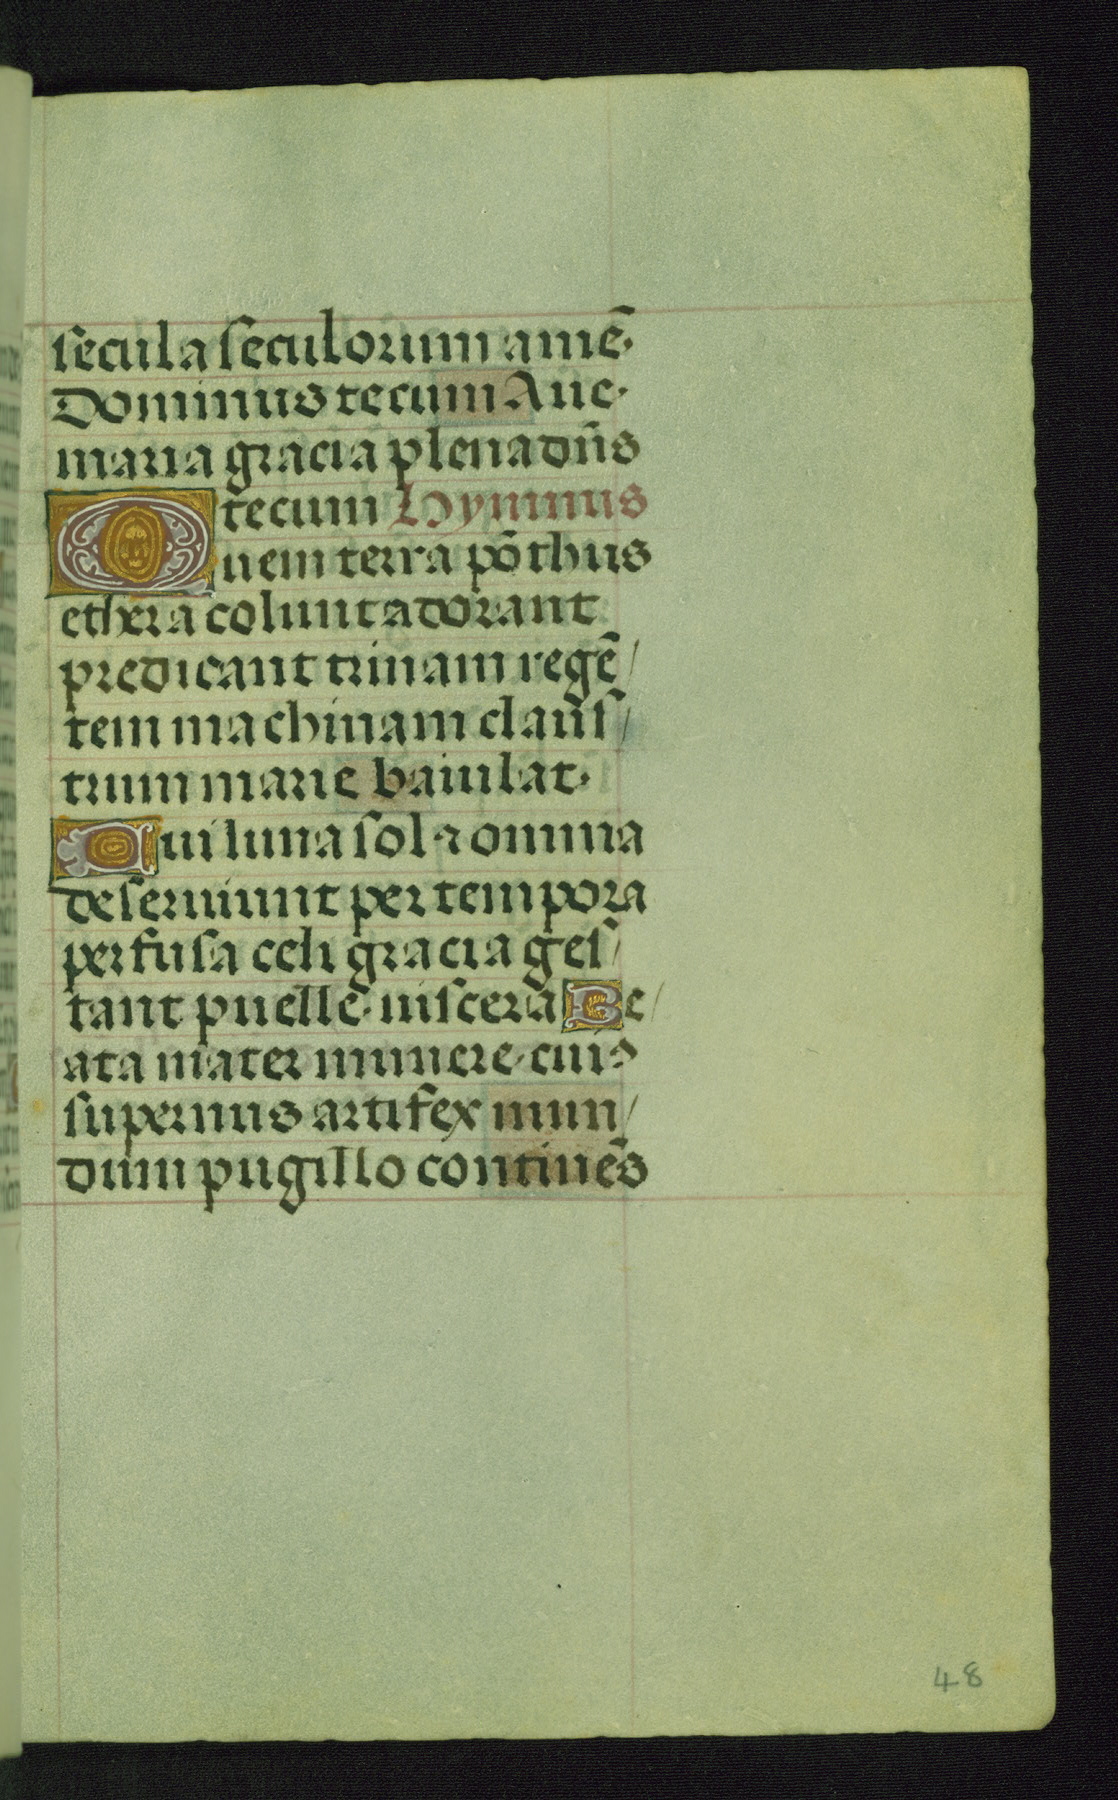 secula seculorum amē·
Dominus tecum Aue·
maria gracia plena dn̄s
tecum Hymnus
Quem terra pōthus
ethera colunt adorant
predicant trinam regē/
tem machinam claus/
trum marie baiulat·
Qui luna sol ⁊ omnia
deseruiunt per tempora
perfusa celi gracia ges/
tant puelle· uiscera Be/
ata mater munere· cuiꝰ
supernus artifex mun/
dum pugillo continēs
48